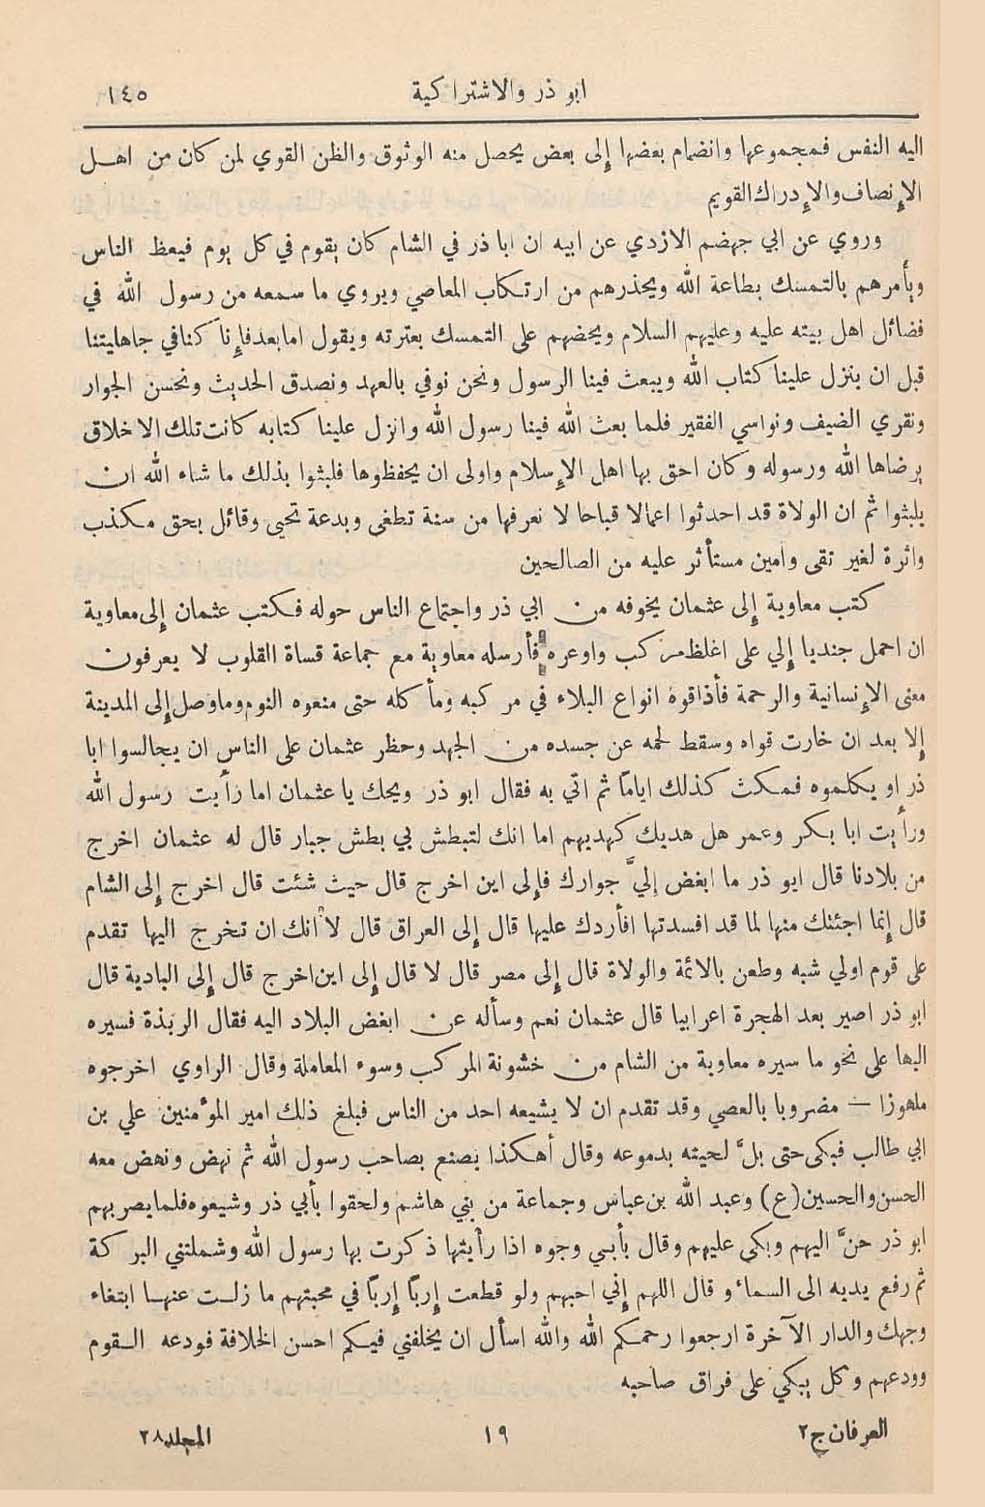 ابو ذر والاشتراكية ١٤٥
اليه النفس فمجموعها وانضمام بعضها إلى بعض يحصل منه الوثوق والظن القوي لمن كان من اهل
الإنصاف والإدراك القويم
وروي عن ابي جهضم الازدي عن ابيه ان ابا ذر في الشام كان يقوم في كل يوم فيعظ الناس
ويأمرهم بالتمسك بطاعة الله ويحذرهم من ارتكاب المعاصي ويروي ما سمعه من رسول الله في
فضائل اهل بيته عليه وعليهم السلام ويحضهم على التمسك بعترته ويقول اما بعد فإنا كنا في جاهليتنا
قبل ان ينزل علينا كتاب الله ويبعث فينا الرسول ونحن نوفي بالعهد ونصدق الحديث ونحسن الجوار
ونقري الضيف ونواسي الفقير فلما بعث الله فينا رسول الله وانزل علينا كتابه كانت تلك الاخلاق
يرضاها الله ورسوله وكان احق بها اهل الإسلام واولى ان يحفظوها فلبثوا بذلك ما شاء الله ان
يلبثوا ثم ان الولاة قد احدثوا اعمالا قباحا لا نعرفها من سنة تطغى وبدعة تحيى وقائل بحق مكذب
واثرة لغير تقى وامين مستأثر عليه من الصالحين
كتب معاوية إلى عثمان يخوفه من ابي ذر واجتماع الناس حوله فكتب عثمان إلى معاوية
ان احمل جنديا إلي على اغلظ مركب واوعره فأرسله معاوية مع جماعة قساة القلوب لا يعرفون
معنى الإنسانية والرحمة فأذاقوه انواع البلاء في مركبه ومأكله حتى منعوه النوم وما وصل إلى المدينة
إلا بعد ان خارت قواه وسقط لحمه عن جسده من الجهد وحظر عثمان على الناس ان يجالسوا ابا
ذر او يكلموه فمكث كذلك اياما ثم اتي به فقال ابو ذر ويحك يا عثمان اما رأيت رسول الله
ورأيت ابا بكر وعمر هل هديك كهديهم اما انك لتبطش بي بطش جبار قال له عثمان اخرج
من بلادنا قال ابو ذر ما ابغض إليَّ جوارك فإلى اين اخرج قال حيث شئت قال اخرج إلى الشام
قال إنما اجئتك منها لما قد افسدتها افأردك عليها قال إلى العراق قال لا انك ان تخرج اليها تقدم
على قوم اولي شبه وطعن بالائمة والولاة قال إلى مصر قال لا قال إلى اين اخرج قال إلى البادية قال
ابو ذر اصير بعد الهجرة اعرابيا قال عثمان نعم وسأله عن ابغض البلاد اليه فقال الربذة فسيره
اليها على نحو ما سيره معاوية من الشام من خشونة المركب وسوء المعاملة وقال الراوي اخرجوه
ملهوزا — مضروبا بالعصي وقد تقدم ان لا يشيعه احد من الناس فبلغ ذلك امير المؤمنين علي بن
ابي طالب فبكى حتى بلَّ لحيته بدموعه وقال أهكذا يصنع بصاحب رسول الله ثم نهض ونهض معه
الحسن والحسين (ع) وعبد الله بن عباس وجماعة من بني هاشم ولحقوا بأبي ذر وشيعوه فلما بصر بهم
ابو ذر حنَّ اليهم وبكى عليهم وقال بأبي وجوه اذا رأيتها ذكرت بها رسول الله وشملتني البركة
ثم رفع يديه الى السماء وقال اللهم إني احبهم ولو قطعت إربًا إربًا في محبتهم ما زلت عنها ابتغاء
وجهك والدار الآخرة ارجعوا رحمكم الله والله اسأل ان يخلفني فيكم احسن الخلافة فودعه القوم
وودعهم وكل يبكي على فراق صاحبه
العرفان ج٢ ١٩ المجلد ٢٨